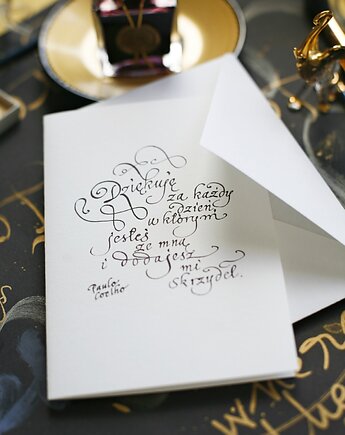 Dziękuję
za każdy
dzień
w którym
jesteś
ze mną
i dodajesz
mi
skrzydeł.
Paulo
Coelho